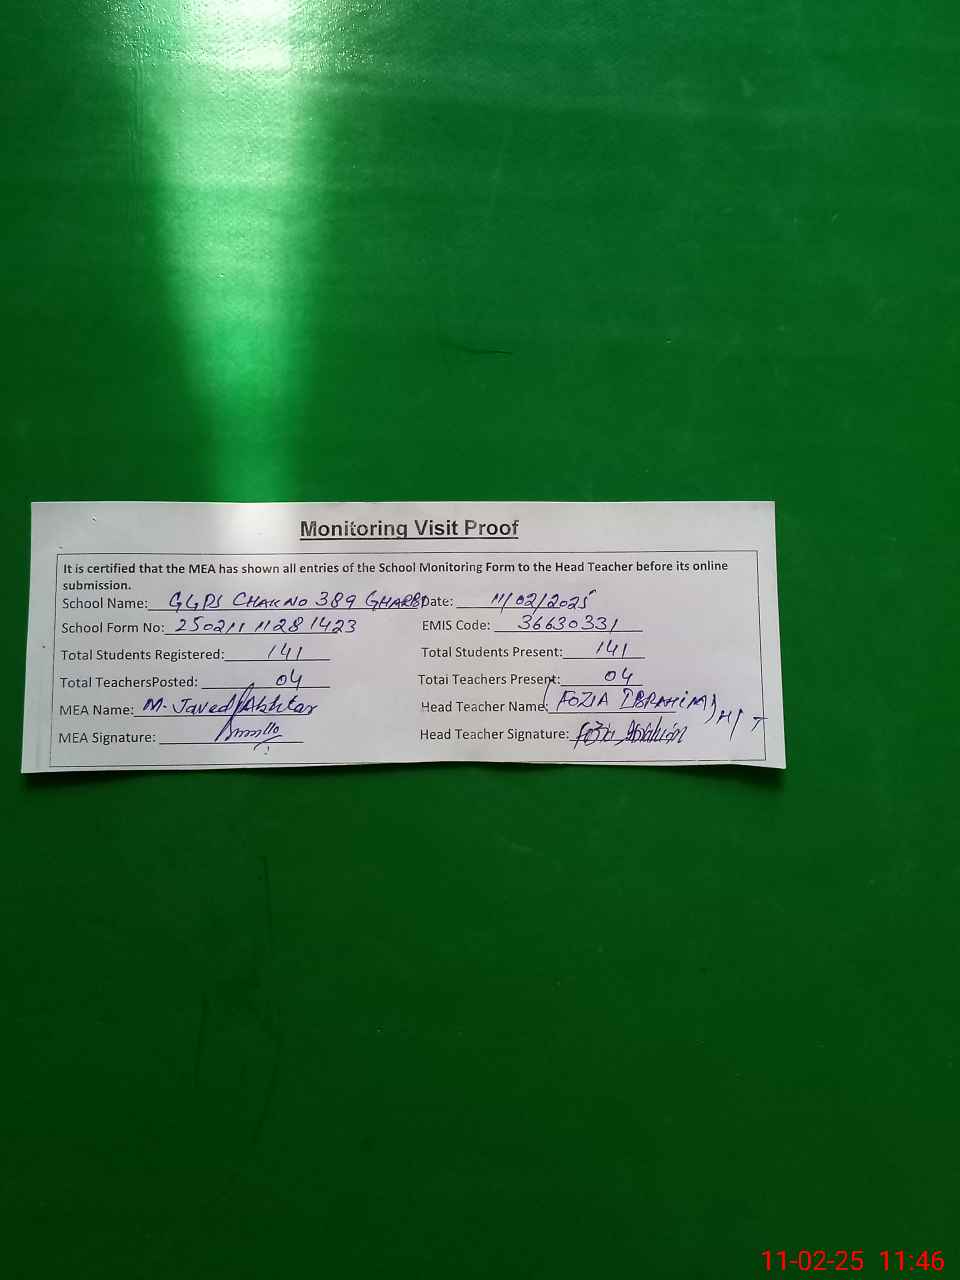 Monitoring Visit Proof
It is certified that the MEA has shown all entries of the School Monitoring Form to the Head Teacher before its online
submission.
School Name: GGPS CHAK NO 389 GHARBI Date: 11/02/2025
School Form No: 250211 11281423 EMIS Code: 36630331
Total Students Registered: 141 Total Students Present: 141
Total TeachersPosted: 04 Total Teachers Present: 04
MEA Name: M. Javed Akhtar Head Teacher Name: FOZIA IBRAHIM H/T
MEA Signature: Head Teacher Signature: Fozia Ibrahim
11-02-25 11:46